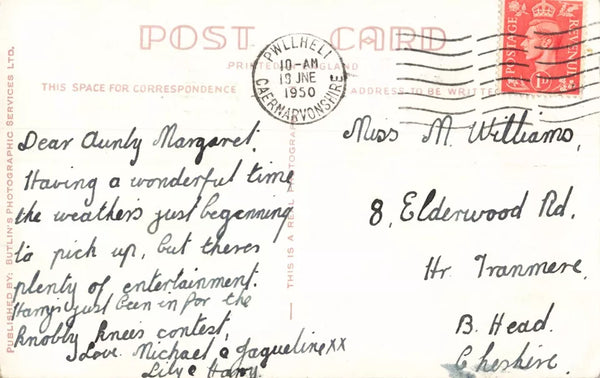 POST CARD
PRINTED IN ENGLAND
THIS SPACE FOR CORRESPONDENCE
ADDRESS TO BE WRITTEN
PWLLHELI
10-AM
19 JNE
1950
CAERNARVONSHIRE
POSTAGE
REVENUE
1D
PUBLISHED BY: BUTLIN'S PHOTOGRAPHIC SERVICES LTD.
THIS IS A REAL PHOTOGRAPH
Dear Aunty Margaret,
Having a wonderful time
the weathers just beginning
to pick up, but theres
plenty of entertainment.
Harry's just been in for the
Knobly knees contest,
Love Michael & Jaqueline xx
Lily & Harry
Miss M. Williams,
8, Elderwood Rd.
Hr. Tranmere,
B. Head.
Cheshire.